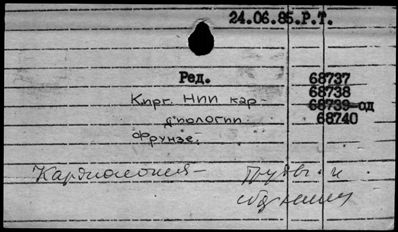 24.06.85.Р.Т.
Ред. 68737
68738
Кирг. НИИ кар- 68739-од
диологии 68740
Фрунзе.
Кардиология - Труды и